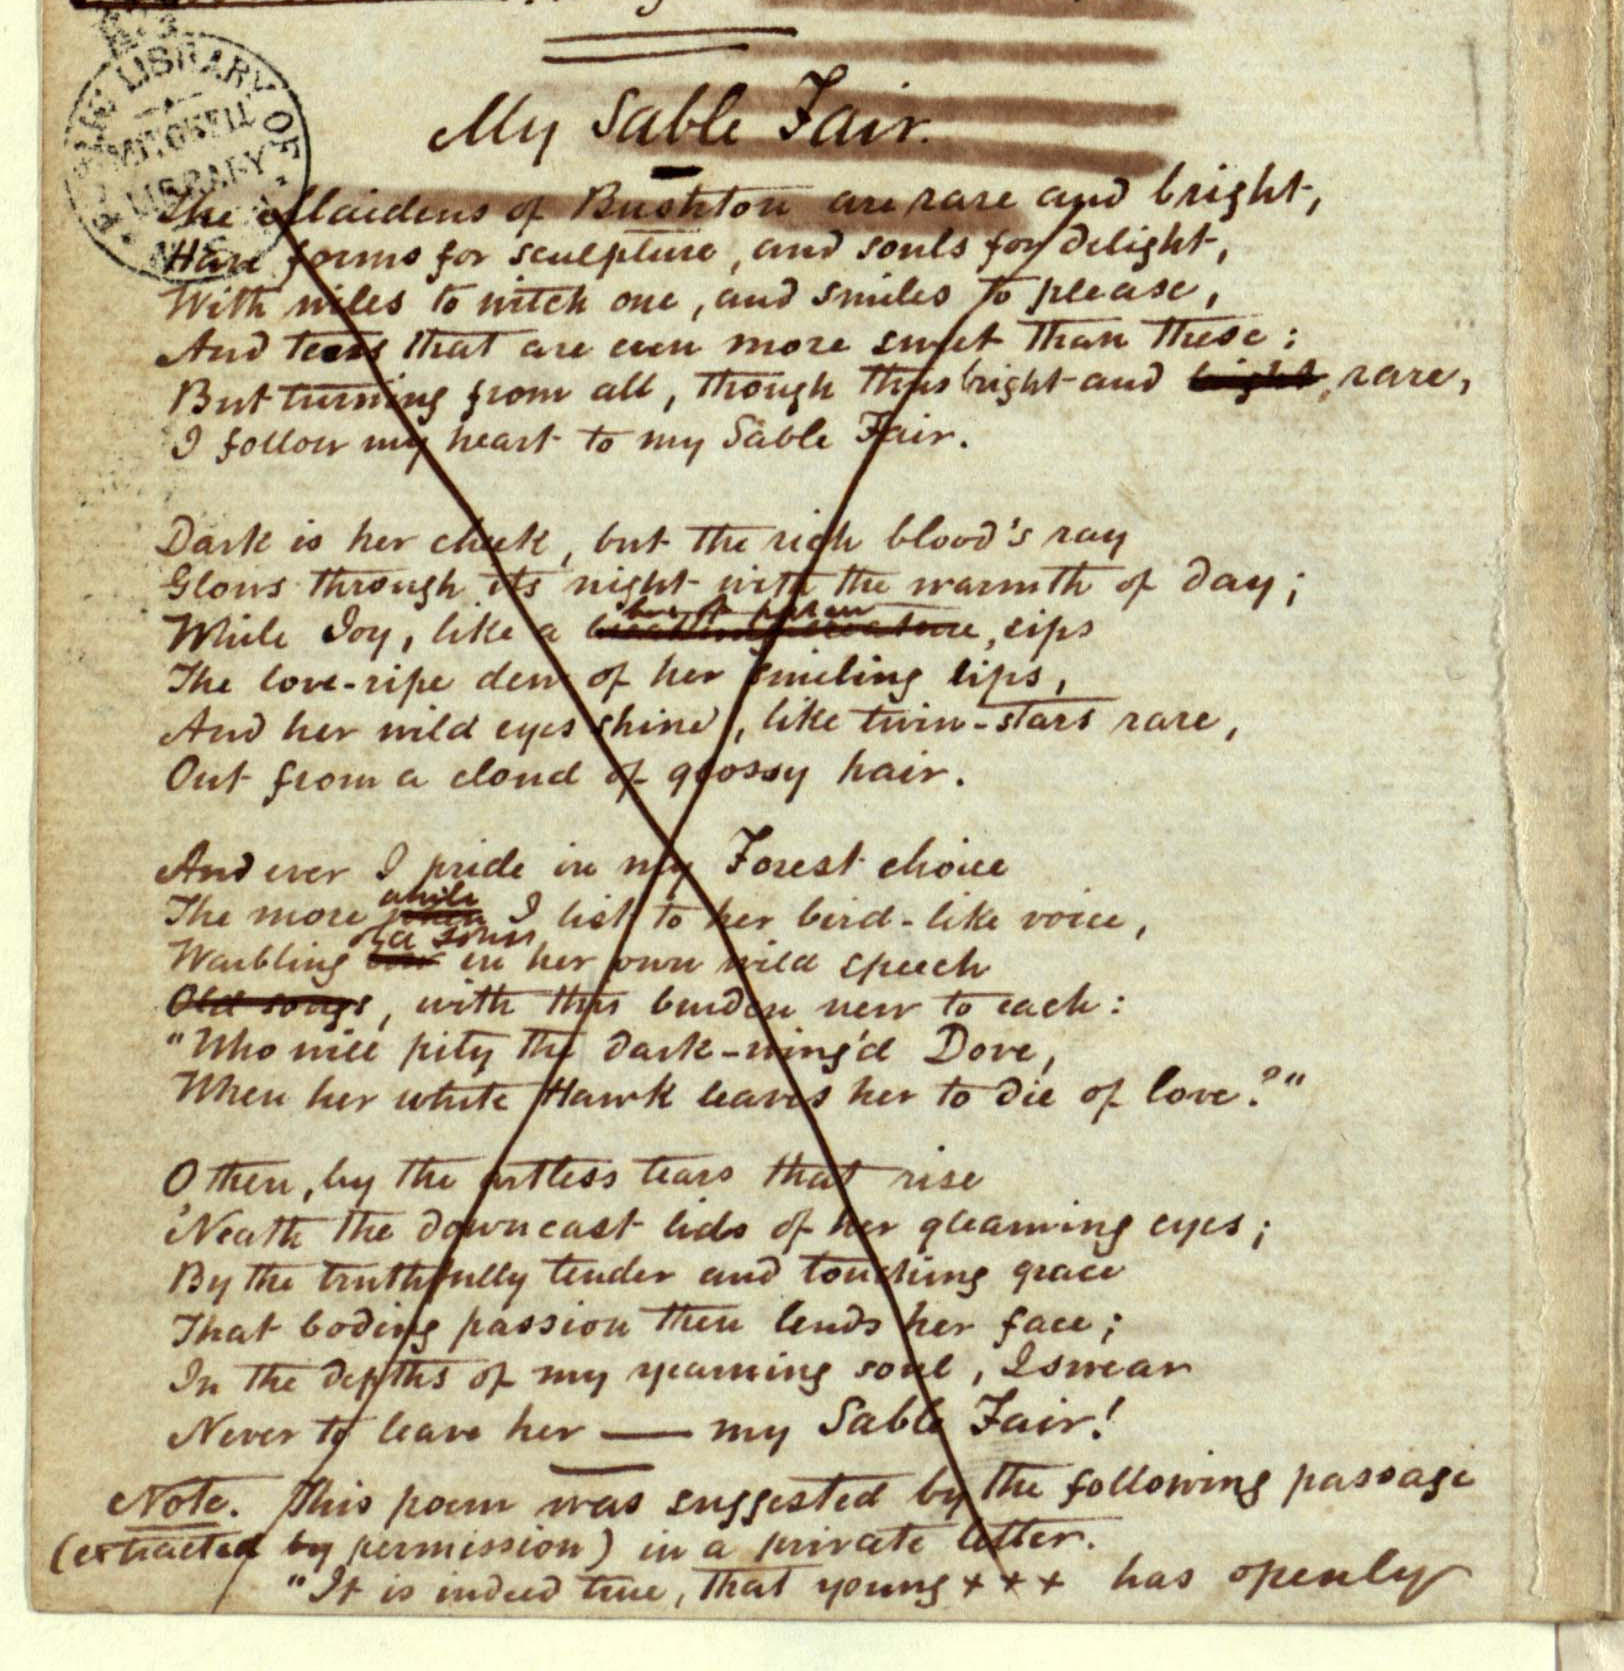 PUBLIC LIBRARY OF
MITCHELL
LIBRARY
N.S.W.
My Sable Fair.
The Maidens of Bushton are rare and bright,
Have forms for sculpture, and souls for delight,
With wiles to witch one, and smiles to please,
And tears that are even more sweet than these:
But turning from all, though thus bright and bright, rare,
I follow my heart to my Sable Fair.
Dark is her cheek, but the rich blood's ray
Glows through its night with the warmth of day;
While Joy, like a sips
The love-ripe dew of her smiling lips,
And her wild eyes shine, like twin-stars rare,
Out from a cloud of glossy hair.
And ever I pride in my Forest choice
while
The more when I list to her bird-like voice,
Warbling in her own wild speech
Old songs, with this burden new to each:
"Who will pity the dark-wing'd Dove,
When her white Hawk leaves her to die of love?"
O then, by the artless tears that rise
'Neath the downcast lids of her gleaming eyes;
By the truthfully tender and touching grace
That boding passion then lends her face;
In the depths of my yearning soul, I swear
Never to leave her — my Sable Fair!
Note. This poem was suggested by the following passage
(extracted by permission) in a private letter.
"It is indeed true, that young + + + has openly